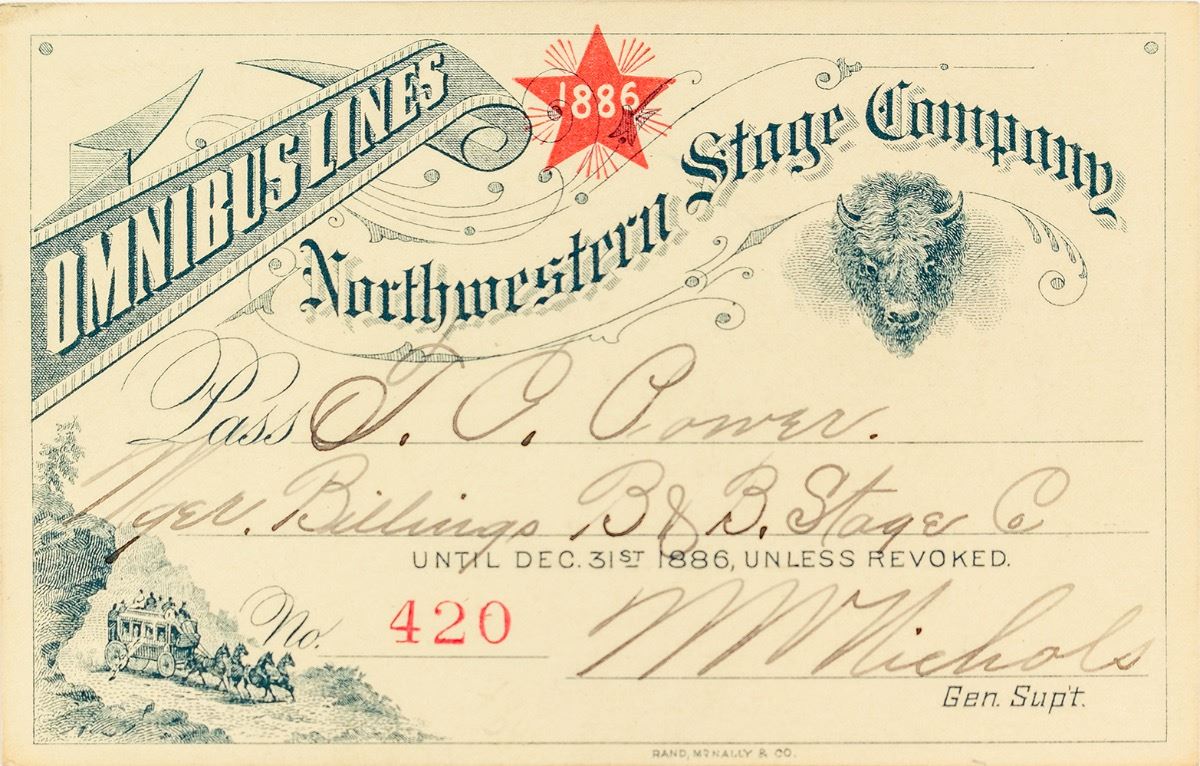 OMNIBUS LINES
1886
Northwestern Stage Company
Pass T. C. Power.
Mger. Billings B & B. Stage Co
UNTIL DEC. 31ST 1886, UNLESS REVOKED.
No. 420
Nichols
Gen. Sup't.
RAND, McNALLY & CO.